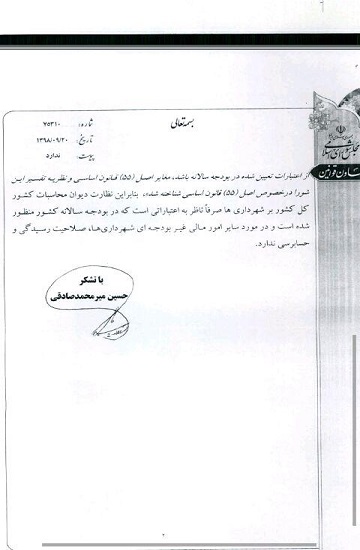 بسمه‌تعالی
شماره: ۷۵۳۱۰
تاریخ: ۱۳۹۸/۰۹/۲۰
پیوست: ندارد
مجلس شورای اسلامی
معاونت قوانین
از اعتبارات تعیین شده در بودجه سالانه باشد، مغایر اصل (۵۵) قانون اساسی و نظریه تفسیر این
شورا درخصوص اصل (۵۵) قانون اساسی شناخته شد»، بنابراین نظارت دیوان محاسبات کشور
کل کشور بر شهرداری ها صرفاً ناظر به اعتباراتی است که در بودجه سالانه کشور منظور
شده است و در مورد سایر امور مالی غیر بودجه ای شهرداری‌ها، صلاحیت رسیدگی و
حسابرسی ندارد.
با تشکر
حسین میرمحمدصادقی
۲